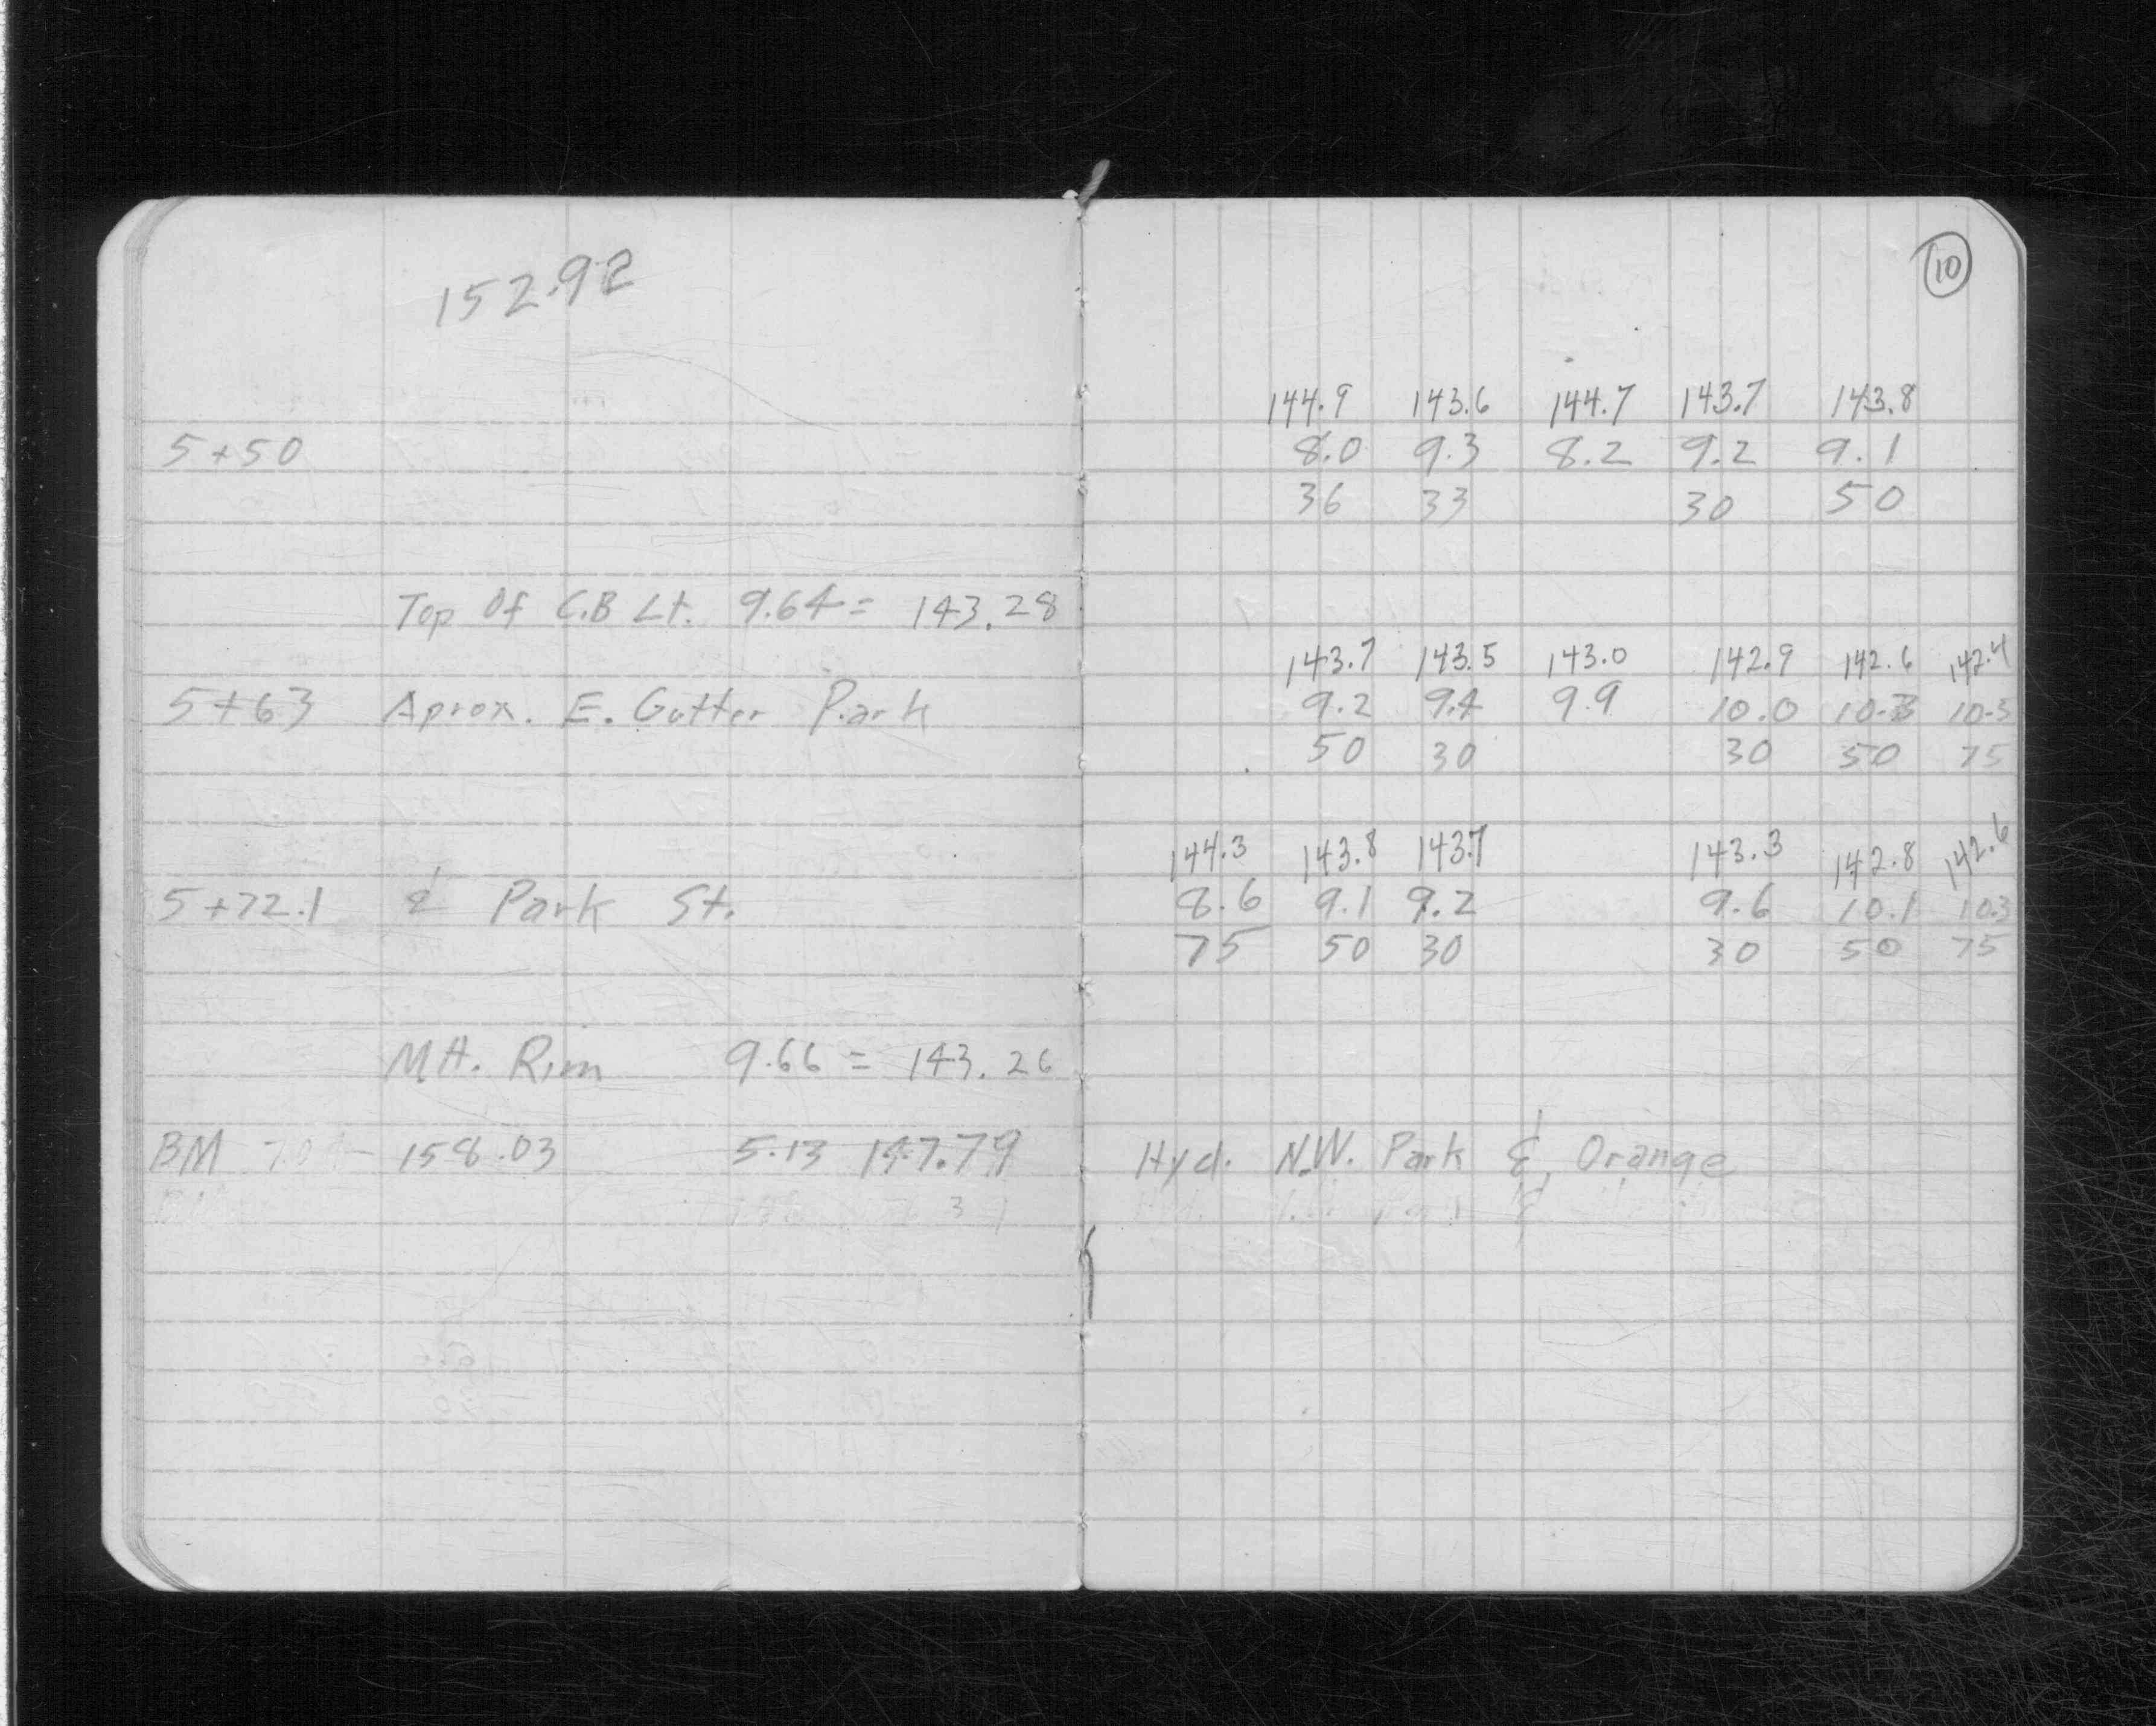 152.92
10
144.9 143.6 144.7 143.7 143.8
5+50 8.0 9.3 8.2 9.2 9.1
36 33 30 50
Top Of C.B Lt. 9.64 = 143.28
143.7 143.5 143.0 142.9 142.6 142.4
5+63 Aprox. E. Gutter Park 9.2 9.4 9.9 10.0 10.3 10.5
50 30 30 50 75
144.3 143.8 143.7 143.3 142.8 142.6
5+72.1 ⅊ Park St. 8.6 9.1 9.2 9.6 10.1 10.3
75 50 30 30 50 75
MH. Rim 9.66 = 143.26
BM 158.03 5.13 147.79 Hyd. N.W. Park & Orange